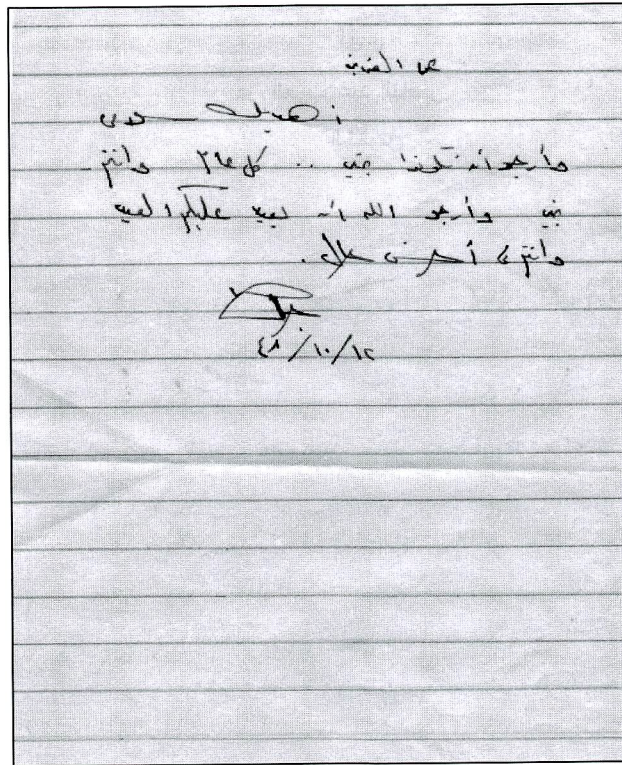 أهديك سلامى
وأرجو أن تكونوا بخير .. كل عام وانتم
بخير وأرجو الله أن يعيد عليكم العيد
وانتم فى أحسن حال .
٤٨/١٠/١٢